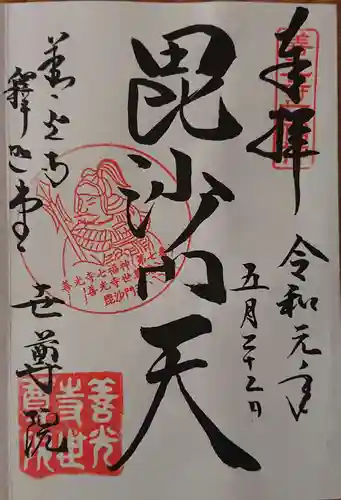 奉拝
令和元年
五月二十二日
毘沙門天
善光寺
釋迦堂
世尊院
善光寺七福神(第七番)
善光寺世尊院
毘沙門天
善光
寺世
尊院